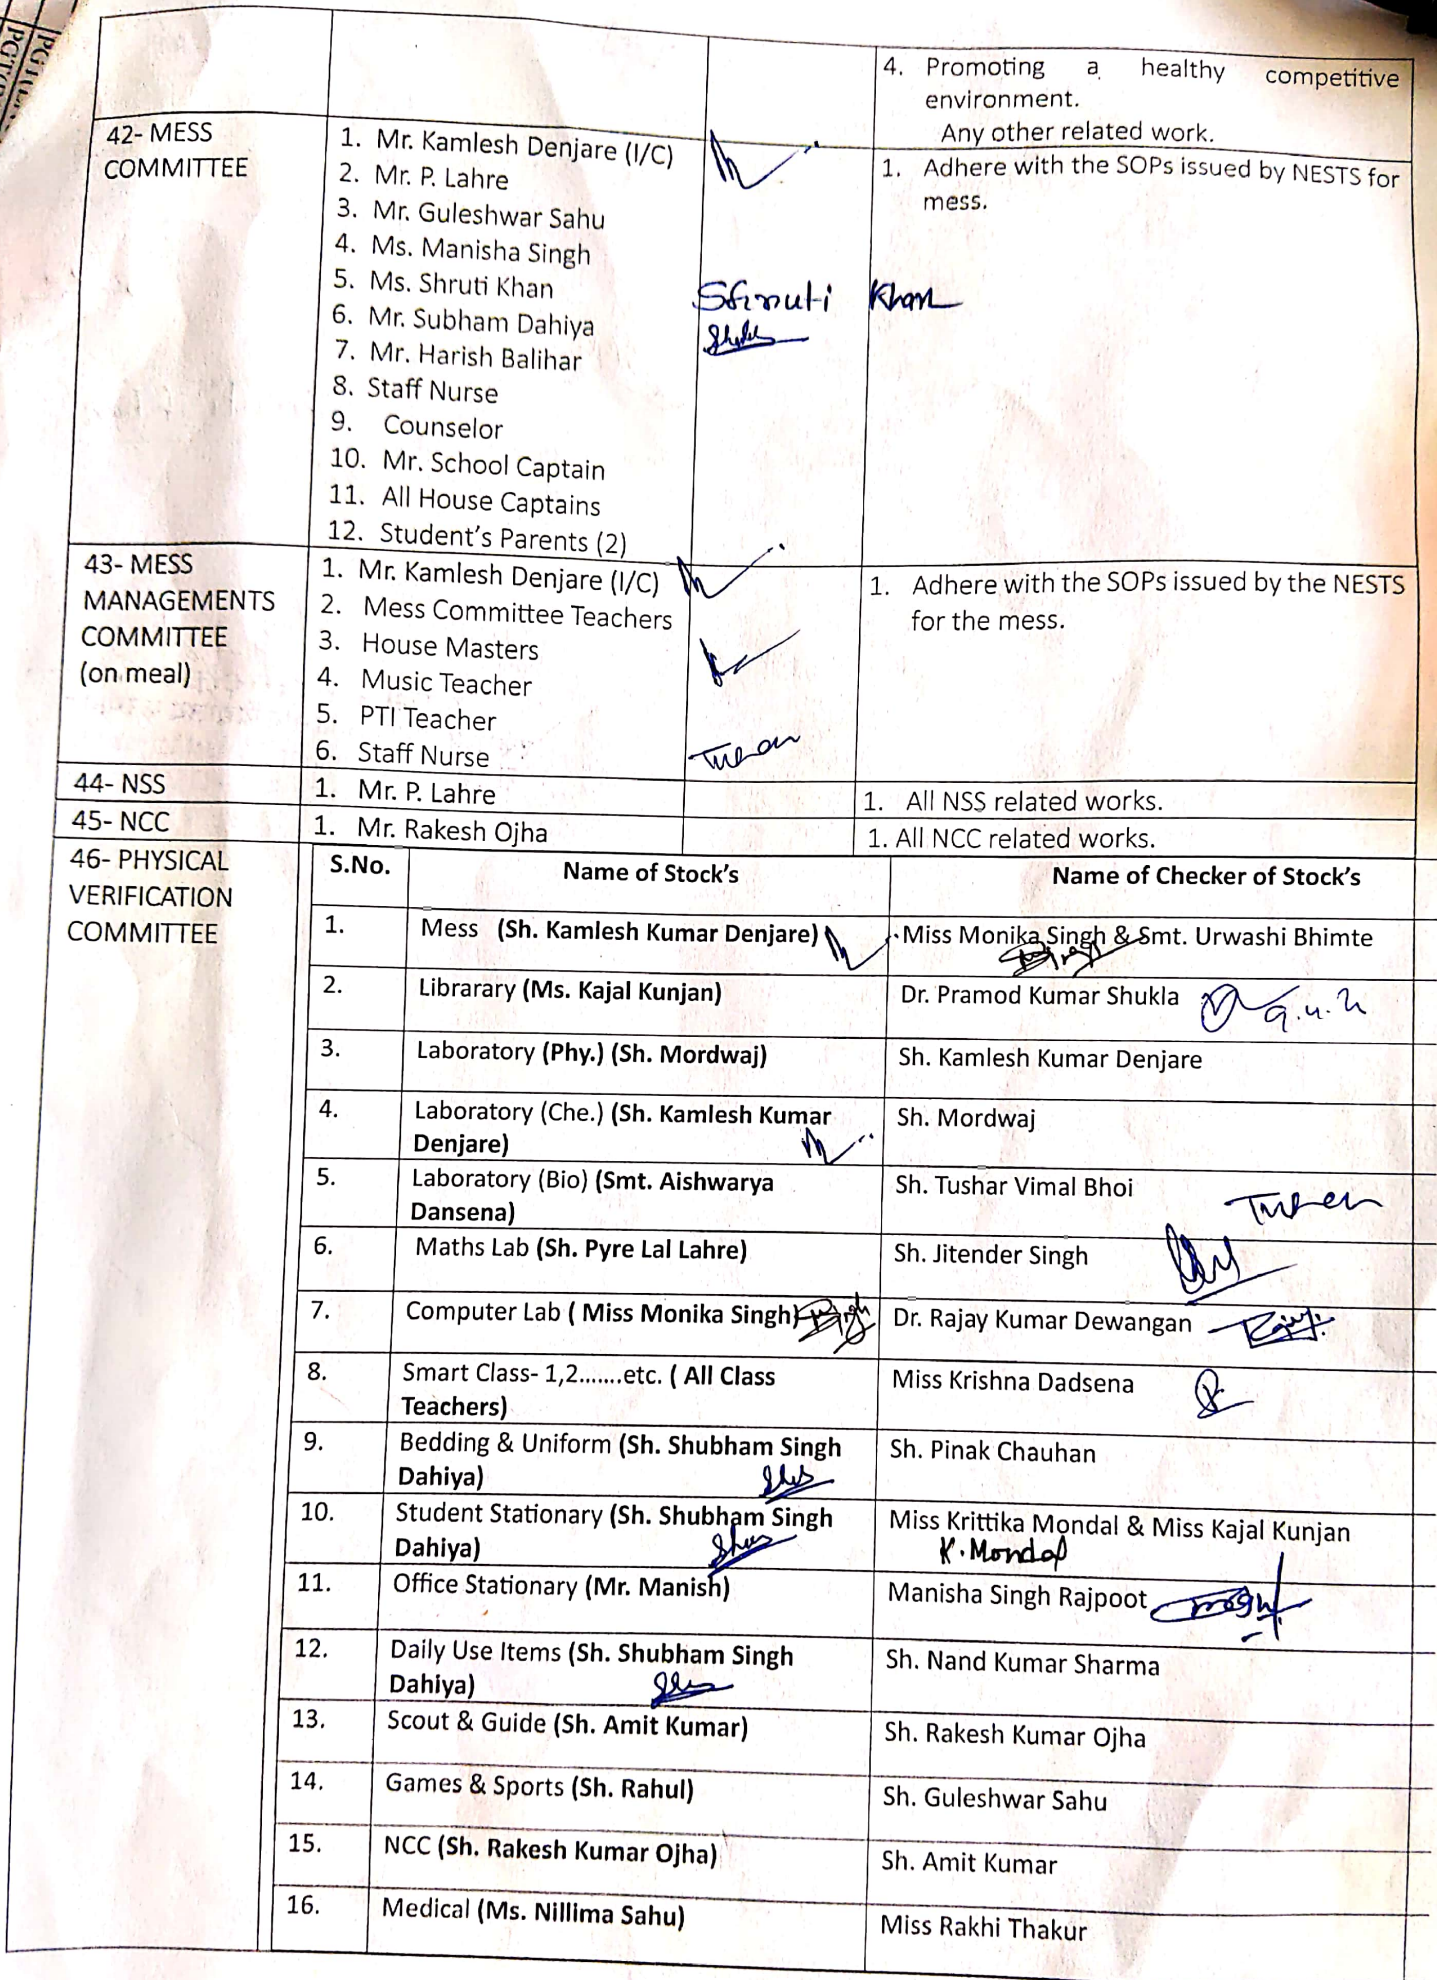 4. Promoting a healthy competitive
environment.
Any other related work.
42- MESS
COMMITTEE
1. Mr. Kamlesh Denjare (I/C)
2. Mr. P. Lahre
3. Mr. Guleshwar Sahu
4. Ms. Manisha Singh
5. Ms. Shruti Khan
6. Mr. Subham Dahiya
7. Mr. Harish Balihar
8. Staff Nurse
9. Counselor
10. Mr. School Captain
11. All House Captains
12. Student's Parents (2)
Shruti Khan
1. Adhere with the SOPs issued by NESTS for
mess.
43- MESS
MANAGEMENTS
COMMITTEE
(on meal)
1. Mr. Kamlesh Denjare (I/C)
2. Mess Committee Teachers
3. House Masters
4. Music Teacher
5. PTI Teacher
6. Staff Nurse
1. Adhere with the SOPs issued by the NESTS
for the mess.
44- NSS
1. Mr. P. Lahre
1. All NSS related works.
45- NCC
1. Mr. Rakesh Ojha
1. All NCC related works.
46- PHYSICAL
VERIFICATION
COMMITTEE
S.No. Name of Stock's Name of Checker of Stock's
1. Mess (Sh. Kamlesh Kumar Denjare) Miss Monika Singh & Smt. Urwashi Bhimte
2. Librarary (Ms. Kajal Kunjan) Dr. Pramod Kumar Shukla
3. Laboratory (Phy.) (Sh. Mordwaj) Sh. Kamlesh Kumar Denjare
4. Laboratory (Che.) (Sh. Kamlesh Kumar Sh. Mordwaj
Denjare)
5. Laboratory (Bio) (Smt. Aishwarya Sh. Tushar Vimal Bhoi
Dansena)
6. Maths Lab (Sh. Pyre Lal Lahre) Sh. Jitender Singh
7. Computer Lab ( Miss Monika Singh) Dr. Rajay Kumar Dewangan
8. Smart Class- 1,2.......etc. ( All Class Miss Krishna Dadsena
Teachers)
9. Bedding & Uniform (Sh. Shubham Singh Sh. Pinak Chauhan
Dahiya)
10. Student Stationary (Sh. Shubham Singh Miss Krittika Mondal & Miss Kajal Kunjan
Dahiya) K. Mondal
11. Office Stationary (Mr. Manish) Manisha Singh Rajpoot
12. Daily Use Items (Sh. Shubham Singh Sh. Nand Kumar Sharma
Dahiya)
13. Scout & Guide (Sh. Amit Kumar) Sh. Rakesh Kumar Ojha
14. Games & Sports (Sh. Rahul) Sh. Guleshwar Sahu
15. NCC (Sh. Rakesh Kumar Ojha) Sh. Amit Kumar
16. Medical (Ms. Nillima Sahu) Miss Rakhi Thakur